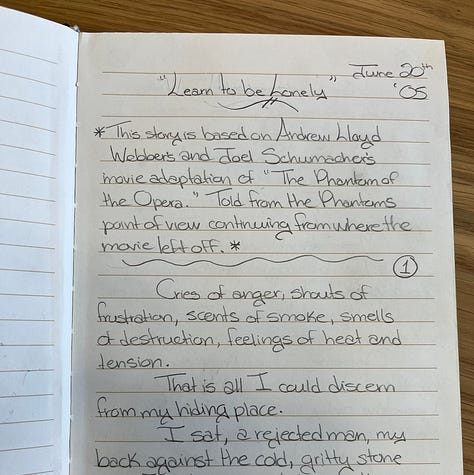 June 20th
"Learn to be Lonely" '05
*This story is based on Andrew Lloyd
Webber's and Joel Schumacher's
movie adaptation of "The Phantom of
the Opera." Told from the Phantoms
point of view continuing from where the
movie left off. *
1
Cries of anger, shouts of
frustration, scents of smoke, smells
of destruction, feelings of heat and
tension.
That is all I could discern
from my hiding place.
I sat, a rejected man, my
back against the cold, gritty stone